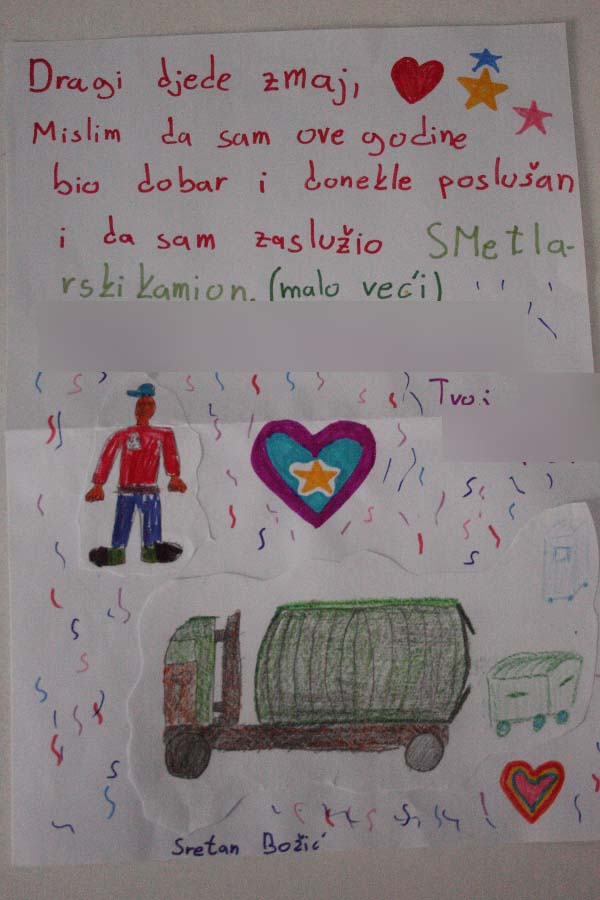 Dragi djede zmaj,
Mislim da sam ove godine
bio dobar i donekle poslušan
i da sam zaslužio SMetla-
rski kamion. (malo veći)
Tvoi
Sretan Božić